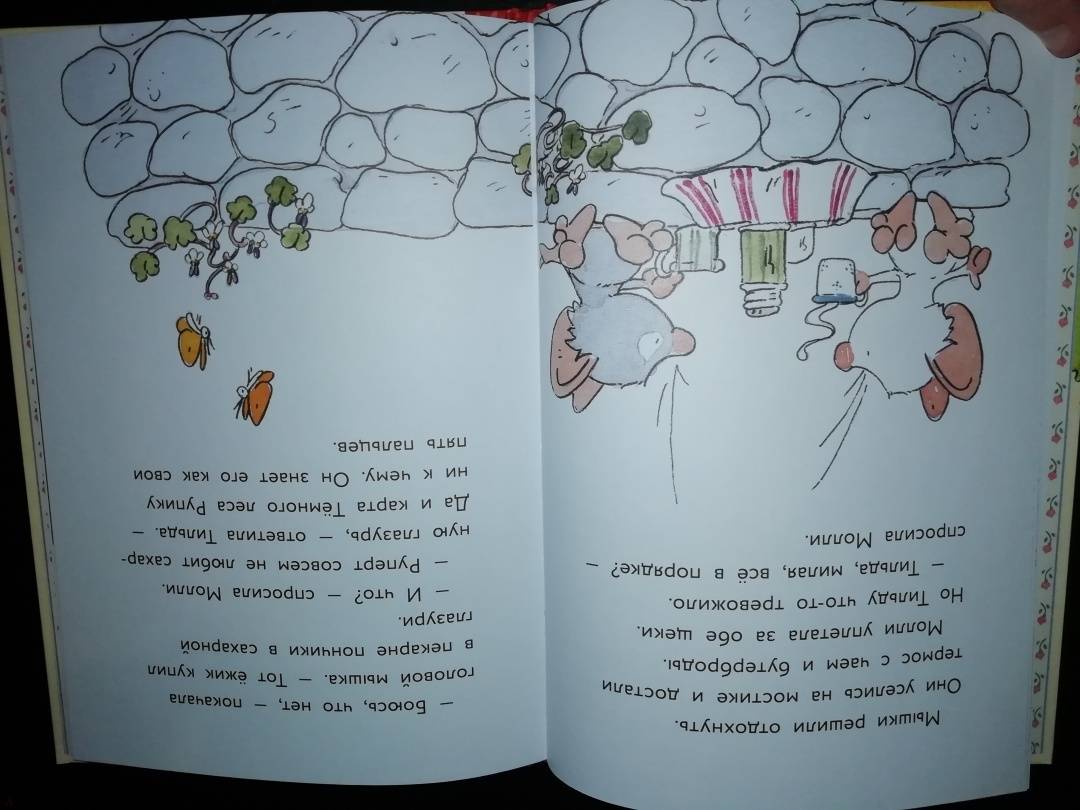 Мышки решили отдохнуть.
Они уселись на мостике и достали
термос с чаем и бутерброды.
Молли уплетала за обе щеки.
Но Тильду что-то тревожило.
— Тильда, милая, всё в порядке? —
спросила Молли.
— Боюсь, что нет, — покачала
головой мышка. — Тот ёжик купил
в пекарне пончики в сахарной
глазури.
— И что? — спросила Молли.
— Руперт совсем не любит сахар-
ную глазурь, — ответила Тильда. —
Да и карта Тёмного леса Рупику
ни к чему. Он знает его как свои
пять пальцев.